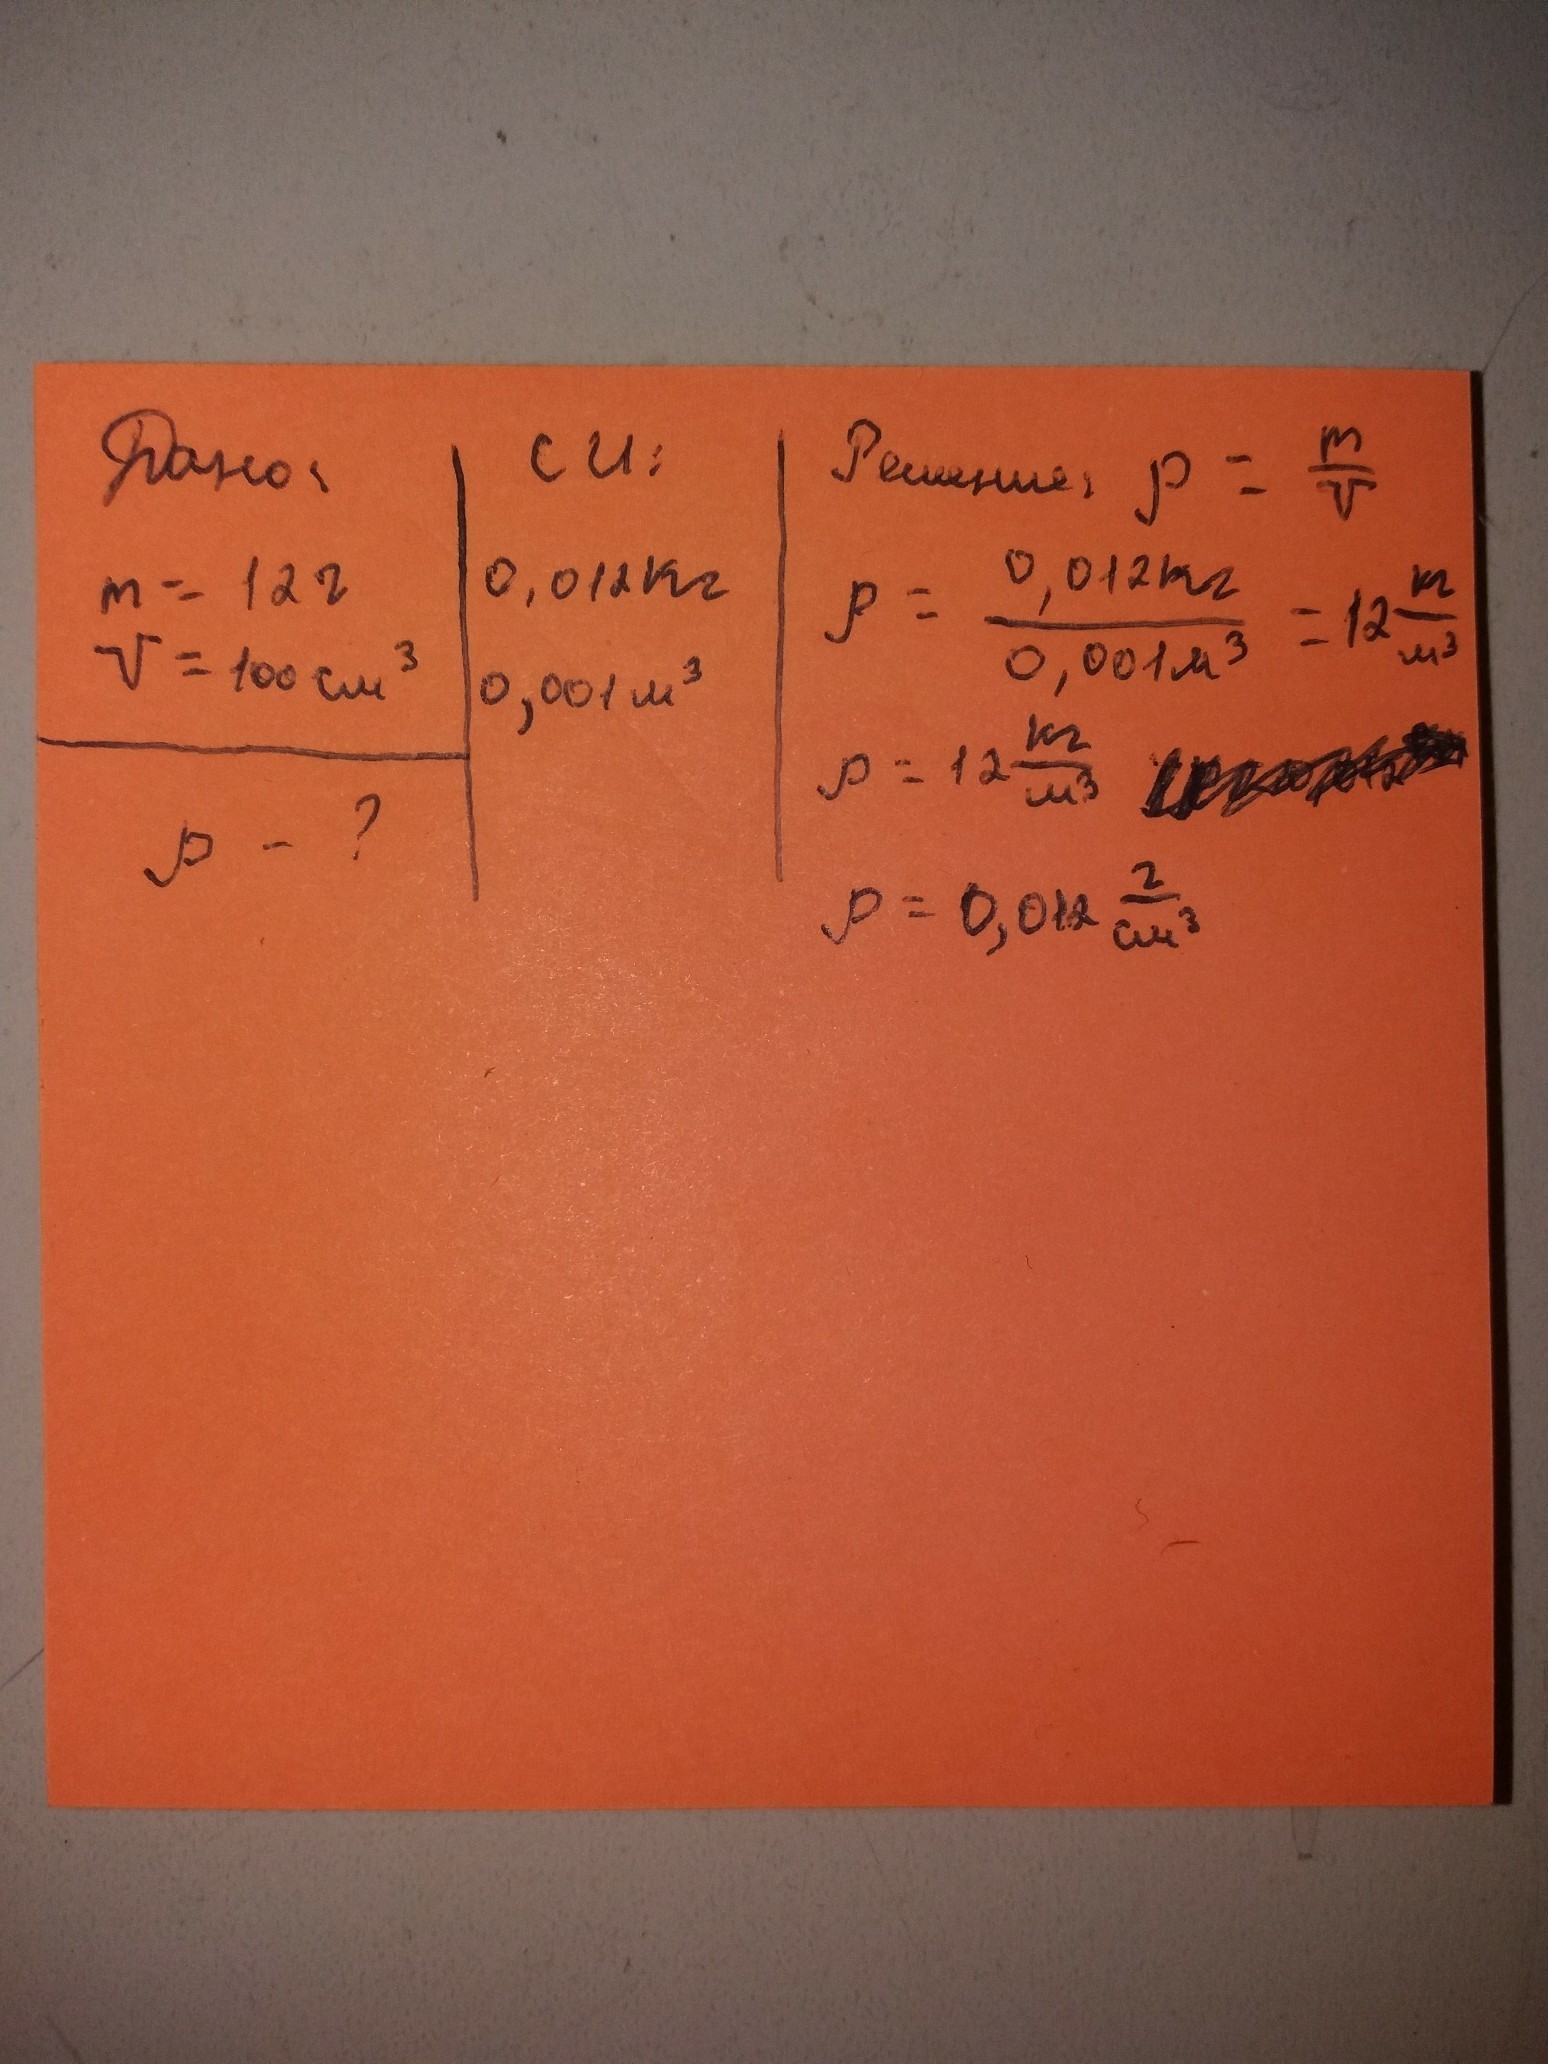 Дано:
m = 12г
V = 100 см³
ρ - ?
СИ:
0,012кг
0,001м³
Решение: ρ = m/V
ρ = 0,012кг/0,001м³ = 12 кг/м³
ρ = 12 кг/м³
ρ = 0,012 г/см³